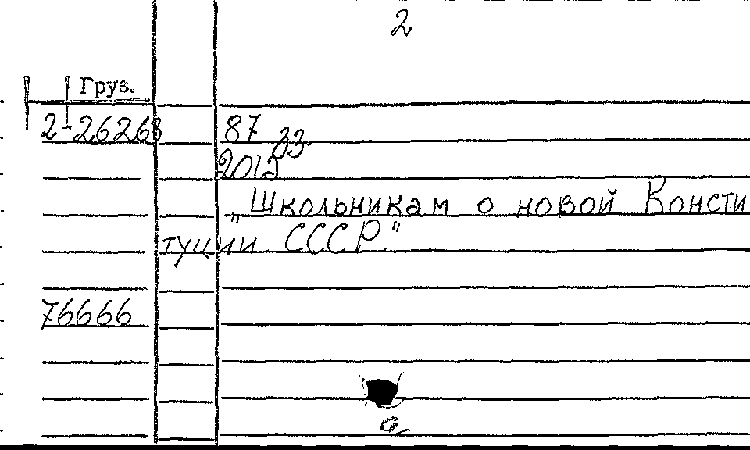 2
Груз.
2-26268
87 33
2012
„Школьникам о новой Консти
туции СССР."
76666